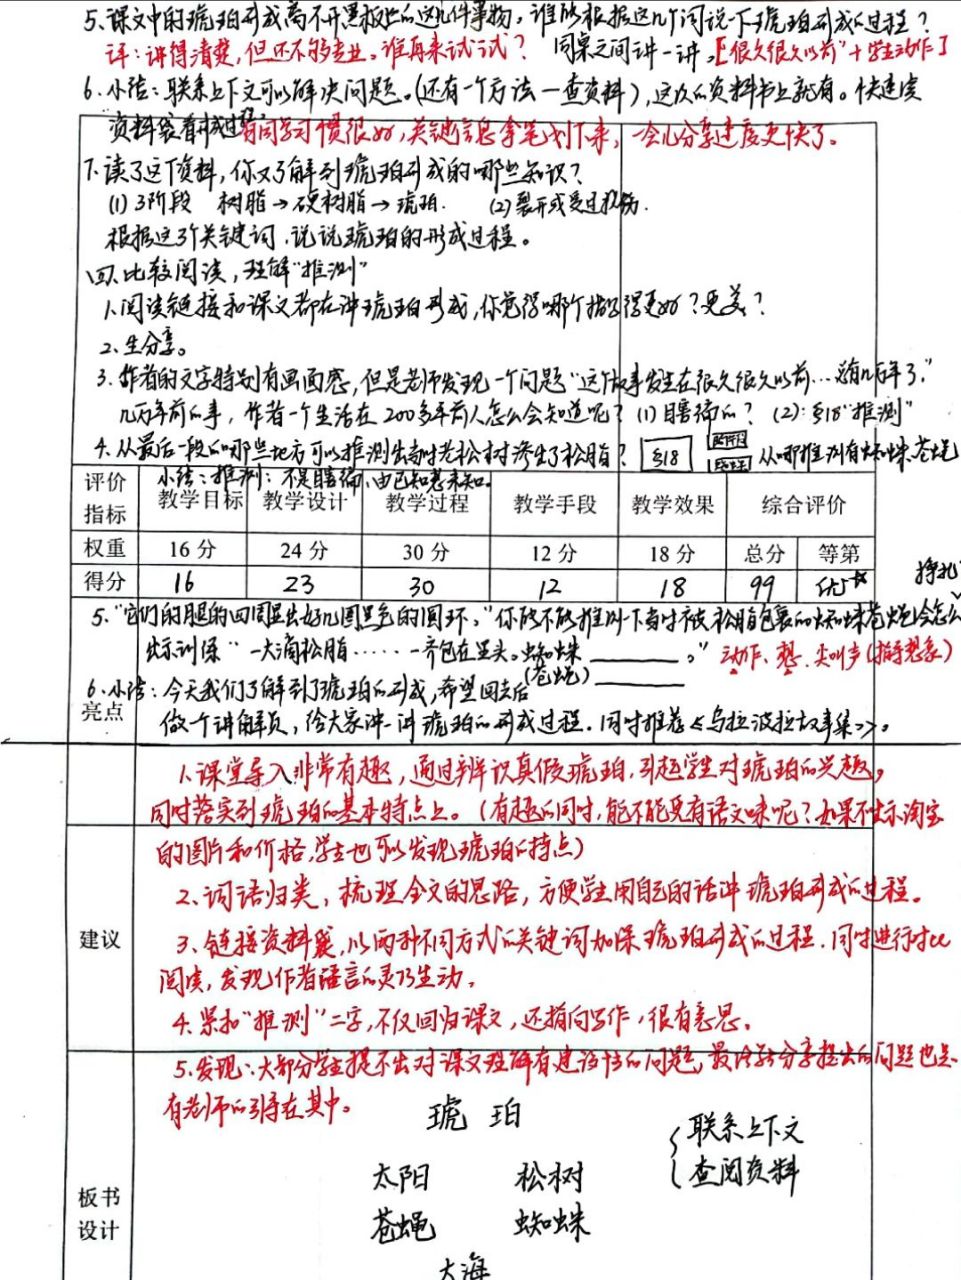 5.课文中的琥珀形成离不开黑板上的这几件事物,谁能根据这几个词说一下琥珀形成的过程?
评:讲得清楚,但还不够专业。谁再来试试? 同桌之间讲一讲。["很久很久以前"+学生动作]
6.小结:联系上下文可以解决问题。(还有一个方法—查资料),这次的资料书上就有。快速读
资料袋 有同学习惯很好,关键信息拿笔划下来,一会儿分享速度更快了。
7.读了这个资料,你又了解到琥珀形成的哪些知识?
(1)3阶段 树脂→硬树脂→琥珀. (2)裂开或受过损伤.
根据这3个关键词,说说琥珀的形成过程。
四、比较阅读,理解"推测"
1.阅读链接和课文都在讲琥珀形成,你觉得哪个描写得更好?更美?
2.生分享。
3.作者的文字特别有画面感,但是老师发现一个问题"这个故事发生在很久很久以前…总有几万年了."
几万年前的事,作者一个生活在200多年前人怎么会知道呢?(1)瞎猜的?(2):§18"推测"
4.从最后一段的哪些地方可以推测出当时老松树渗出了松脂? §18 从哪推测有蜘蛛、苍蝇
小结:推测:不是瞎猜,由已知想未知。
评价指标 教学目标 教学设计 教学过程 教学手段 教学效果 综合评价
权重 16分 24分 30分 12分 18分 总分 等第
得分 16 23 30 12 18 99 优☆
挣扎
5."它们的腿的四周显出好几圈黑色的圆环。"你能不能推测一下当时被松脂包裹的蜘蛛苍蝇会怎么
出示训练"一大滴松脂……一齐包在里头。蜘蛛______。" 动作、想、尖叫声(指导想象)
(苍蝇)______
6.小结:今天我们了解到了琥珀的形成,希望回去后
亮点
做一个讲解员,给大家讲一讲琥珀的形成过程.同时推荐《乌拉波拉故事集》。
1.课堂导入非常有趣,通过辨识真假琥珀,引起学生对琥珀的兴趣,
同时落实到琥珀的基本特点上。(有趣的同时,能不能更有语文味呢?如果不出示淘宝
的图片和价格,学生也可以发现琥珀的特点)
2.词语归类,梳理全文的思路,方便学生用自己的话讲琥珀形成的过程。
建议
3.链接资料袋,以两种不同方式的关键词加深琥珀形成的过程.同时进行对比
阅读,发现作者语言的灵巧生动。
4.紧扣"推测"二字,不仅回归课文,还指向写作,很有意思。
5.发现:大部分学生提不出对课文理解有建设性的问题,最后学生分享提出的问题也是
有老师的引导在其中。
板书设计
琥珀
太阳 松树
苍蝇 蜘蛛
大海
联系上下文
查阅资料